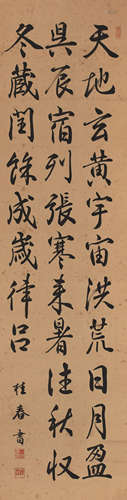 天地玄黃宇宙洪荒日月盈
昃辰宿列張寒来暑往秋收
冬藏閏餘成歲律呂
桂春書